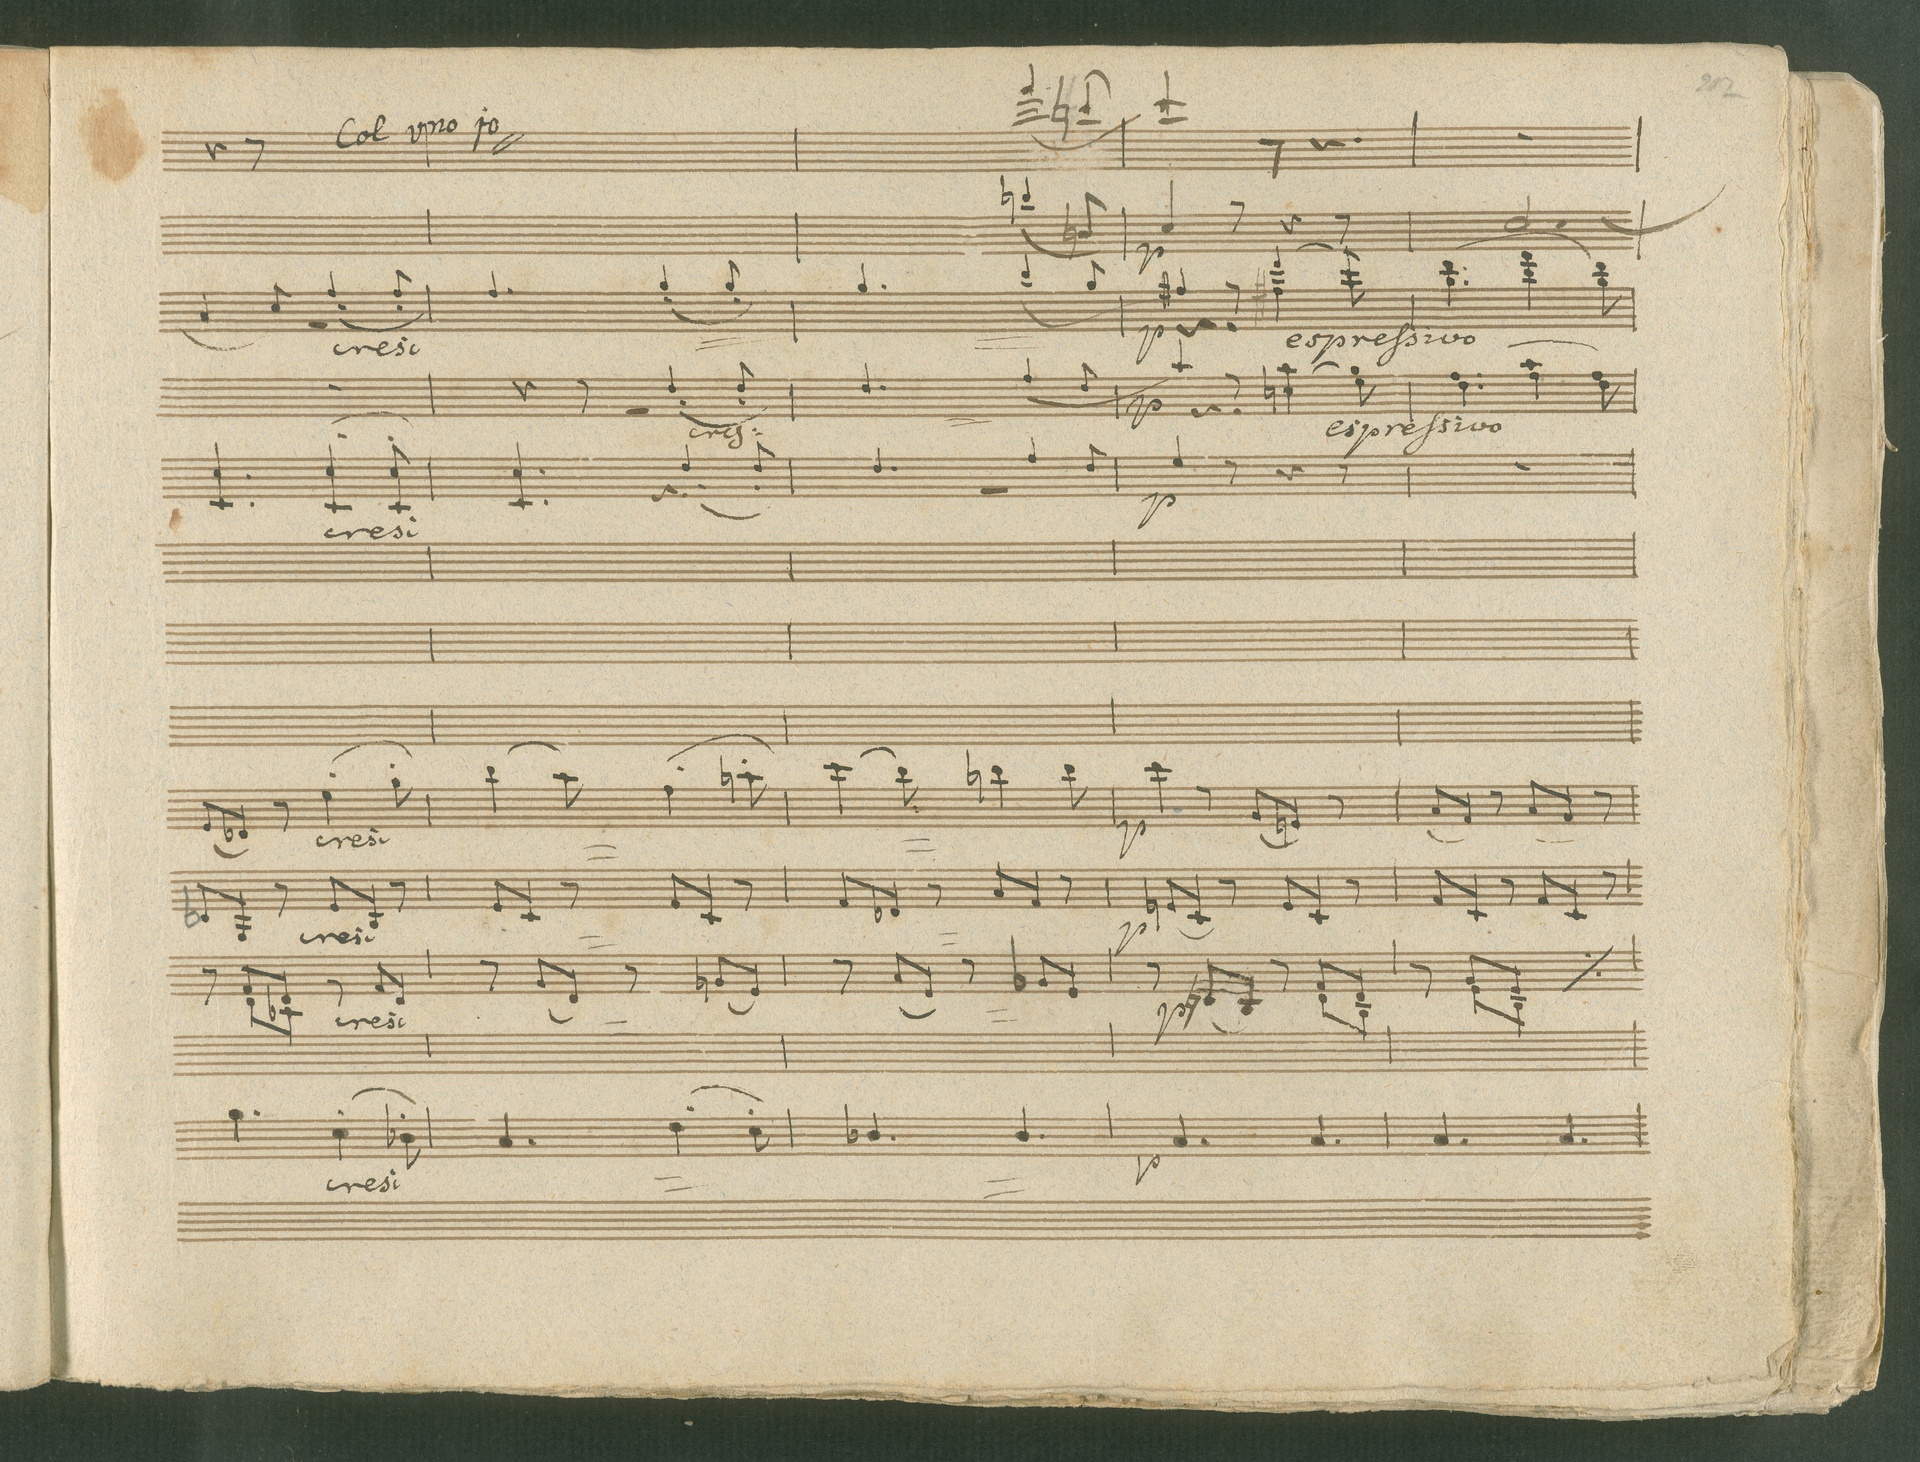 202
Col vno jo
p
cresc
p
espressivo
cres:
p
espressivo
cresc
p
cresc
p
cresc
p
cresc
pp
cresc
p